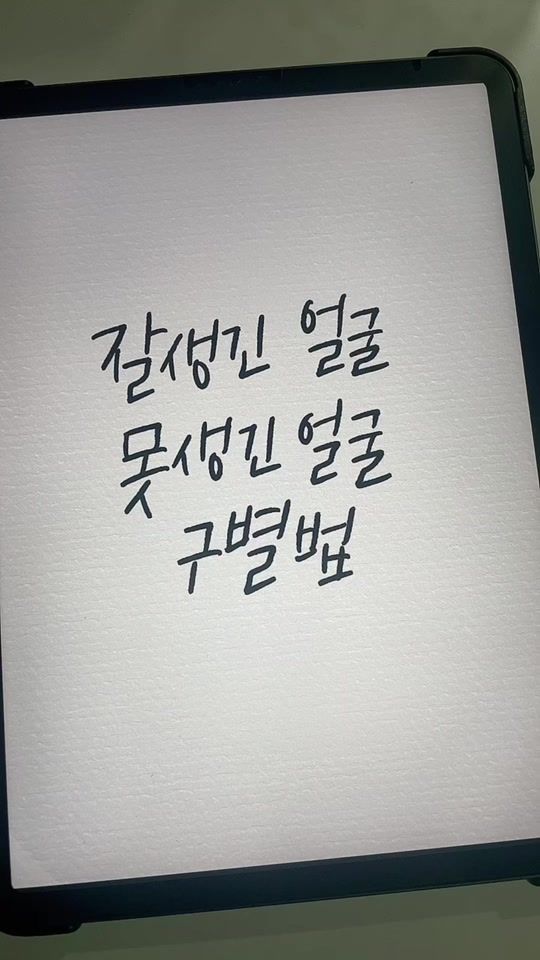 잘생긴 얼굴
못생긴 얼굴
구별법